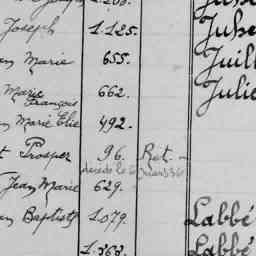 Joseph 1.125. Jube
Marie 655. Juill
Marie François 662. Julie
Marie Elie 492.
Prosper 96. Ret.
décédé le
Jean Marie 629.
Baptiste 1.079. Labbé
1.363. Labbé